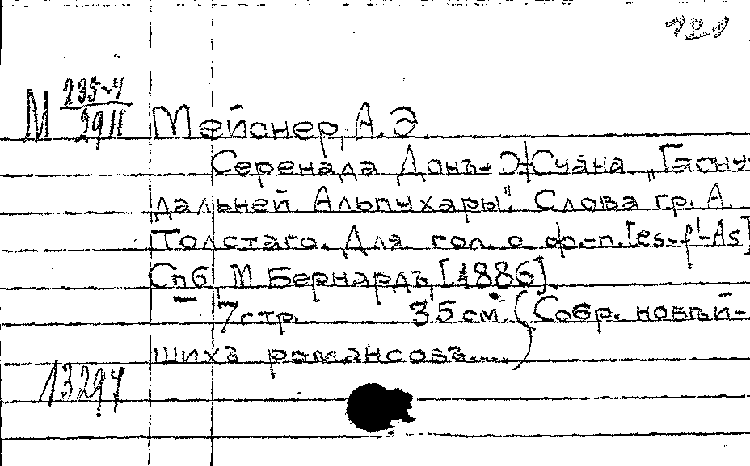 М 235-4/2911
Мейснер, А. Э.
Серенада Донъ-Жуана „Гасну
дальней Альпухары". Слова гр. А.
Толстаго. Для гол. с ф-п. [es-f¹-As]
Спб, М. Бернардъ, [1886].
7 стр. 35 см. (Собр. новѣй-
шихъ романсовъ....)
13294